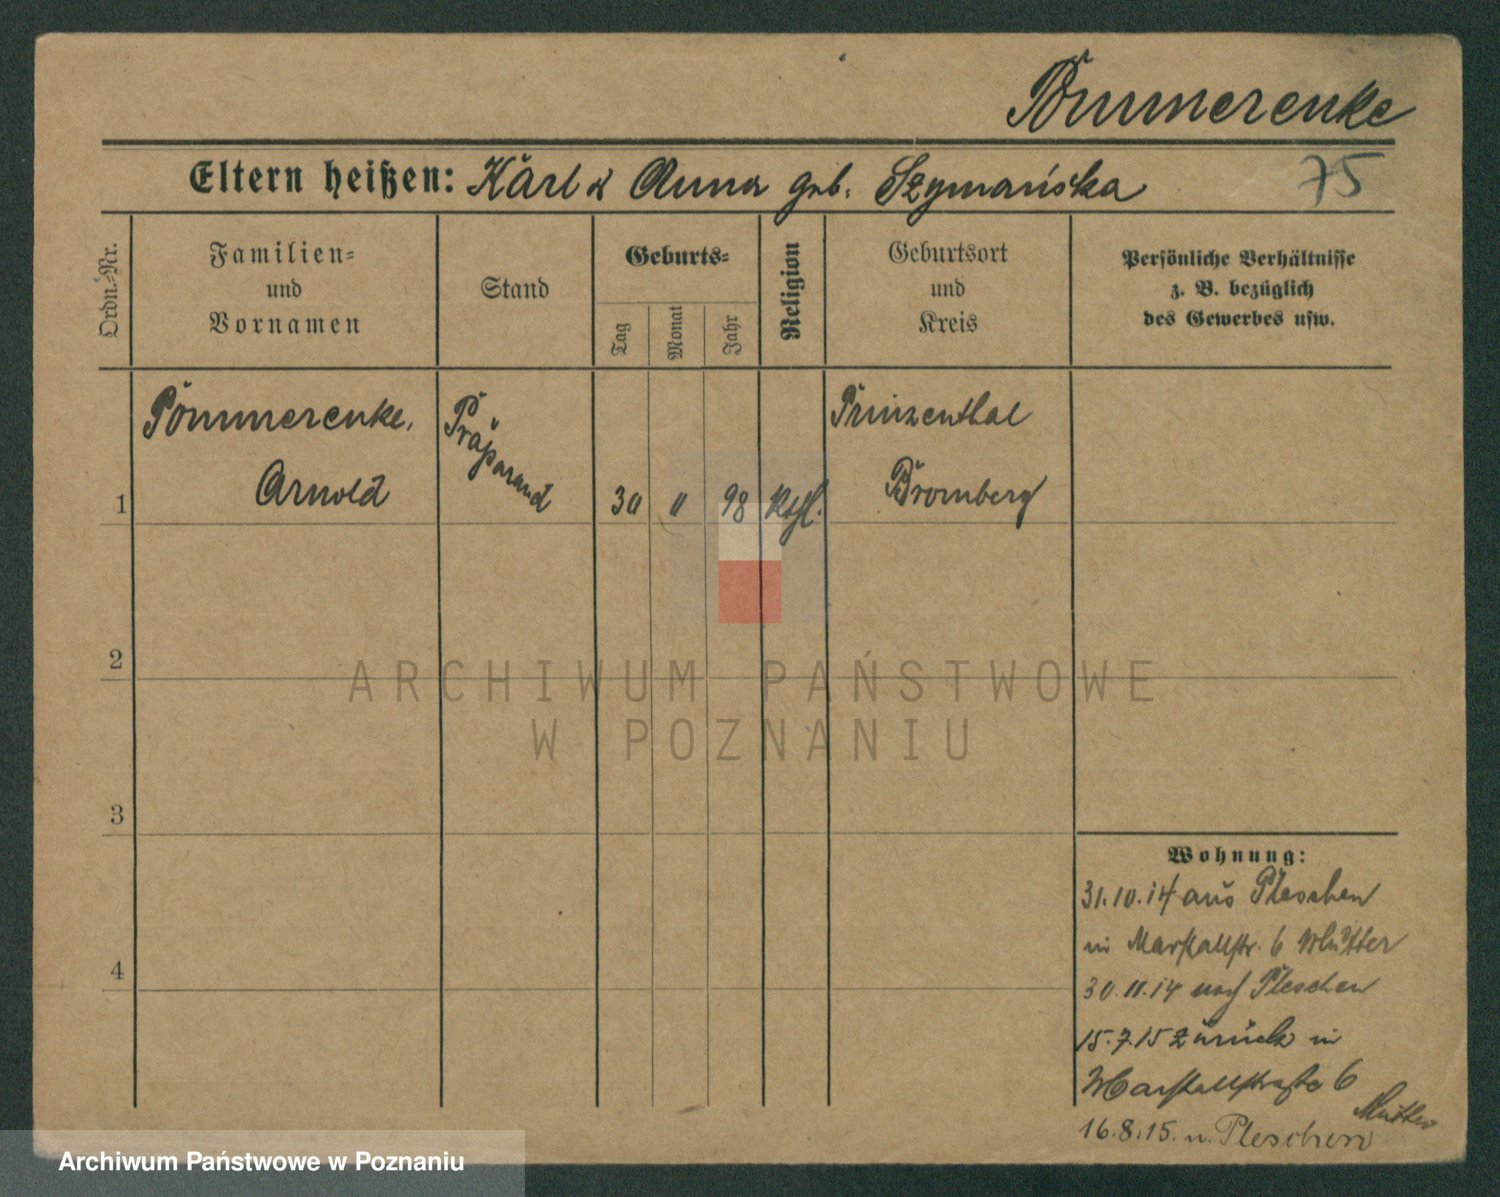 Pommerenke
Eltern heißen: Karl & Anna geb. Szymańska
75
Ordn.-Nr.
Familien-
und
Vornamen
Stand
Geburts-
Tag
Monat
Jahr
Religion
Geburtsort
und
Kreis
Persönliche Verhältnisse
z. B. bezüglich
des Gewerbes usw.
1
Pommerenke,
Arnold
Präparand
30
11
98
Kthl.
Prinzenthal
Bromberg
2
3
4
ARCHIWUM PAŃSTWOWE
W POZNANIU
Wohnung:
31.10.14 aus Pleschen
in Marstallstr. 6 Mutter
30.11.14 nach Pleschen
15.7.15 zurück in
Marstallstraße 6
Mutter
16.8.15. n. Pleschen
Archiwum Państwowe w Poznaniu